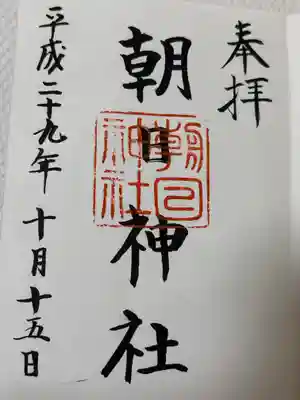 奉拝
朝日神社
朝日神社
平成二十九年十月十五日